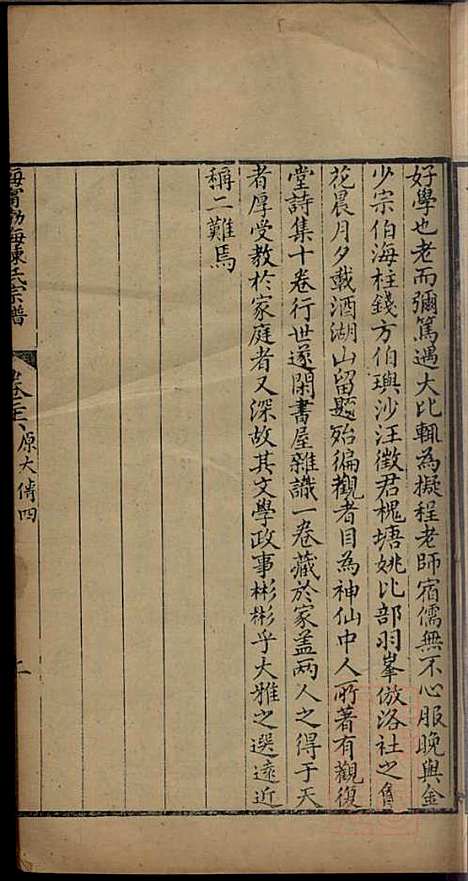 好學也老而彌篤遇大比輒為擬程老師宿儒無不心服晚與金
少宗伯海柱錢方伯璵沙汪徵君槐塘姚比部羽峯倣洛社之會
花晨月夕載酒湖山留題殆徧觀者目為神仙中人所著有觀復
堂詩集十卷行世遂閑書屋雜識一卷藏於家盖兩人之得于天
者厚受教於家庭者又深故其文學政事彬彬乎大雅之選遠近
稱二難焉
海寧渤海陳氏宗譜 原大傳四